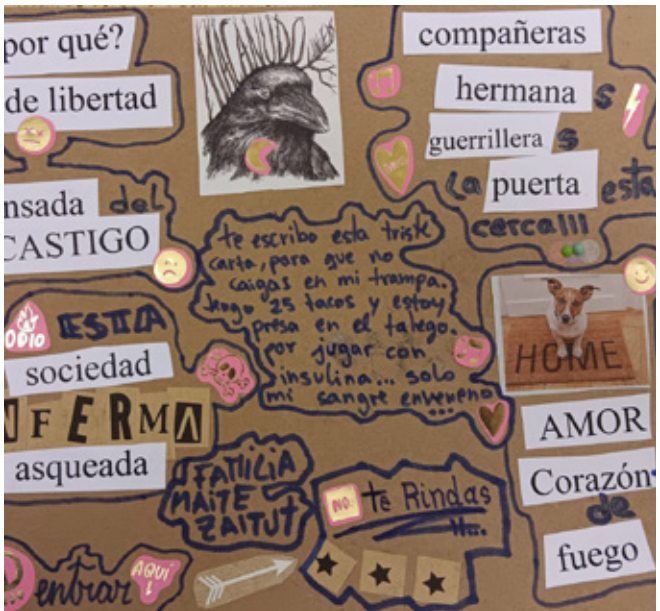 por qué?
de libertad
nsada del
CASTIGO
ODIO
ESTA
sociedad
NFERMA
asqueada
entrar
AQUÍ
te escribo esta triste
carta, para que no
caigas en mi trampa.
tengo 25 tacos y estoy
presa en el talego.
por jugar con
insulina... solo
mi sangre enveneno
...
FAMILIA
MAITE
ZAITUT
NO
te Rindas
compañeras
hermanas
guerrilleras
La puerta esta
cerca!!!
HOME
AMOR
Corazón
de
fuego